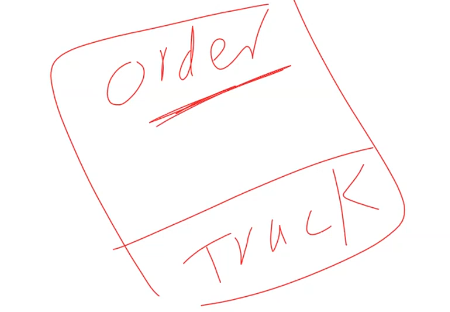 Order
Track